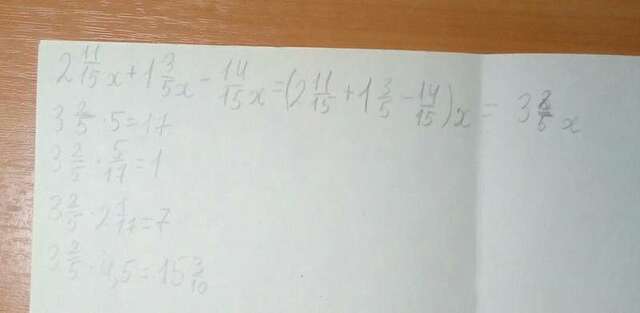 2 11/15 x + 1 3/5 x - 14/15 x = (2 11/15 + 1 3/5 - 14/15) x = 3 2/5 x
3 2/5 · 5 = 17
3 2/5 · 5/17 = 1
3 2/5 · 2 1/17 = 7
3 2/5 · 4,5 = 15 3/10